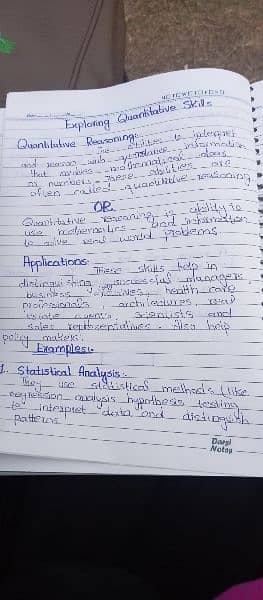 Exploring Quantitative Skills
Quantitative Reasoning:-
The abilities to interpret
and reason with information
that involves mathematical ideas
or numbers. These abilities are
often called quantitative reasoning
OR
Quantitative reasoning is ability to
use mathematics and information
to solve real world problems.
Applications:-
These skills help in
distinguishing successful managers
business health care
professionals, architectures, real
estate agents, scientists and
sales representatives. Also help
policy makers.
Examples:-
1. Statistical Analysis:-
They use statistical methods (like
regression analysis hypothesis testing
to interpret data and distinguish
patterns.
Darsi
Notes